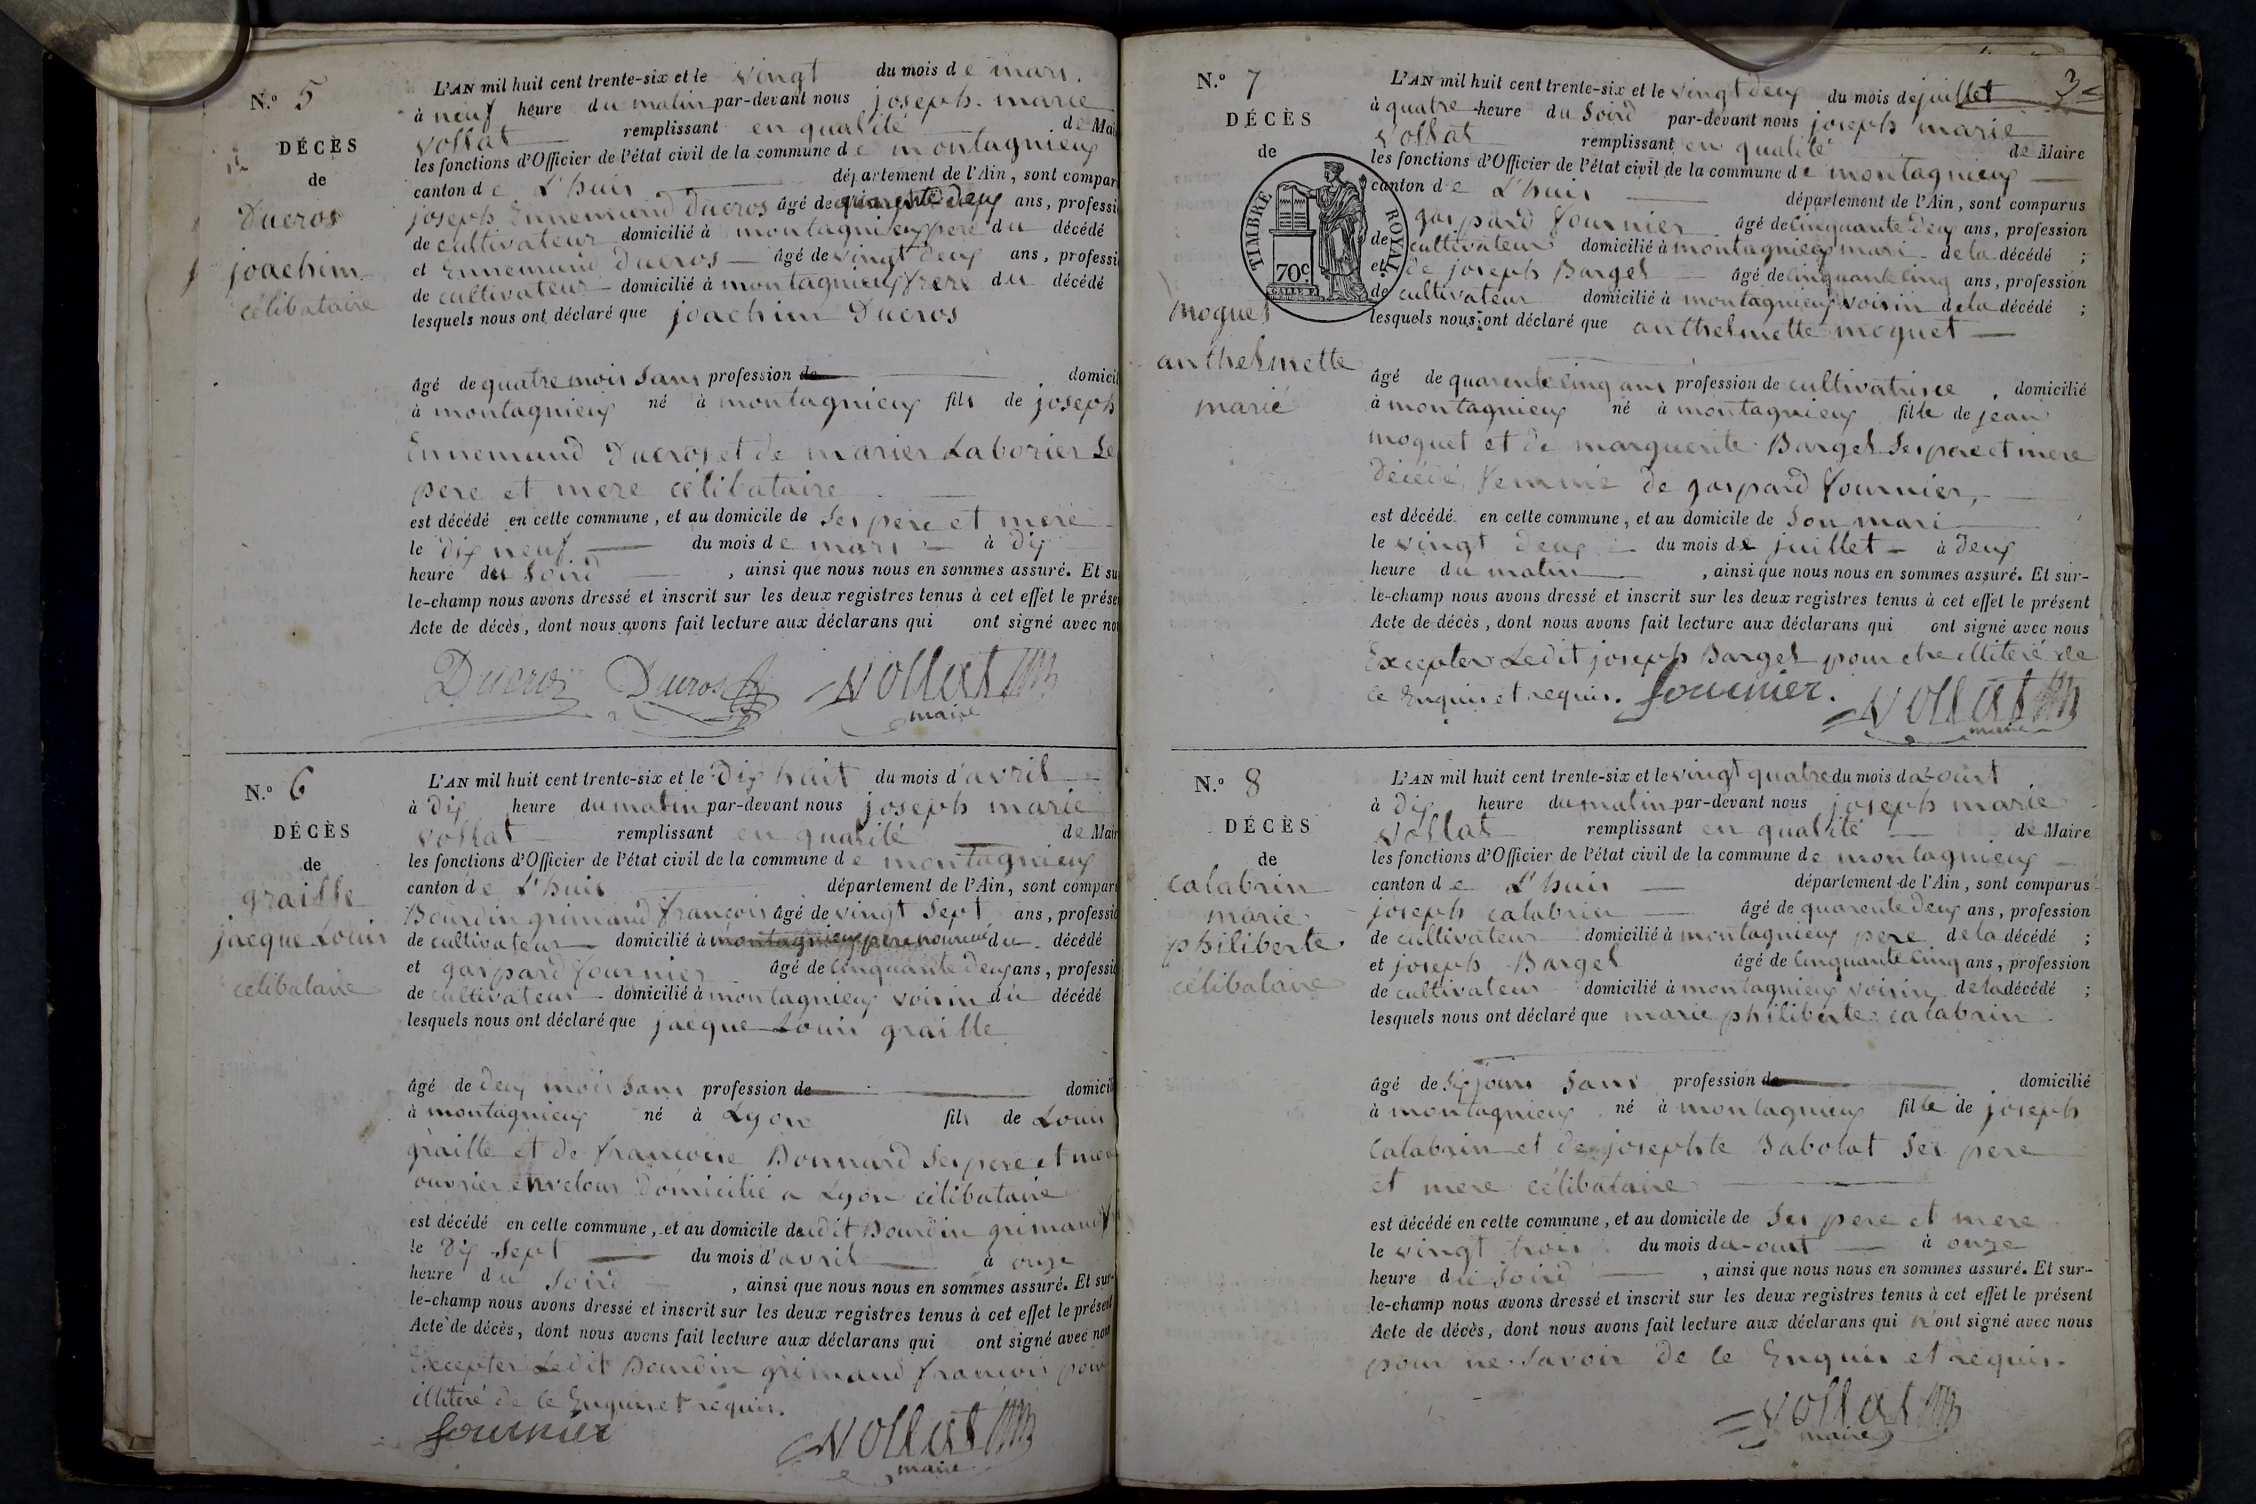 N.° 5
DÉCÈS
de
Ducros
joachim
célibataire
L'AN mil huit cent trente-six et le vingt du mois de mars.
à neuf heure du matin par-devant nous joseph marie
vollat remplissant en qualité de Mai
les fonctions d'Officier de l'état civil de la commune de montagnieux
canton de L'huis département de l'Ain, sont compar
joseph Ennemund Ducros âgé de quarante deux ans, professi
de cultivateur domicilié à montagnieux pere du décédé
et Ennemund Ducros âgé de vingt deux ans, professi
de cultivateur domicilié à montagnieux frere du décédé
lesquels nous ont déclaré que joachim Ducros
âgé de quatre mois sans profession de domicil
à montagnieux né à montagnieux fils de joseph
Ennemund Ducros et de marier Laborier Se
pere et mere célibataire
est décédé en cette commune, et au domicile de Ses pere et mere
le dix neuf du mois de mars à dix
heure du Soird , ainsi que nous nous en sommes assuré. Et su
le-champ nous avons dressé et inscrit sur les deux registres tenus à cet effet le prése
Acte de décès, dont nous avons fait lecture aux déclarans qui ont signé avec no
Ducros Ducros vollat
maire
N.° 6
DÉCÈS
de
graille
jacque Louis
célibataire
L'AN mil huit cent trente-six et le Dix huit du mois d'avril
à Dix heure du matin par-devant nous joseph marie
vollat remplissant en qualité de Mair
les fonctions d'Officier de l'état civil de la commune de montagnieux
canton de L'huis département de l'Ain, sont compar
Bourdin grimaud françois âgé de vingt Sept ans, professio
de cultivateur domicilié à montagnieux pere nouricié du décédé
et gaspard fournier âgé de Cinquante deux ans, professi
de cultivateur domicilié à montagnieux voisin du décédé
lesquels nous ont déclaré que jacque Louis graille
âgé de deux mois Sans profession de domicil
à montagnieux né à Lyon fils de Louis
graille et de francoise Bonnard Ses pere et mere
ouvrier en velour domicilié a Lyon célibataire
est décédé en cette commune, et au domicile dudit Bourdin grimaud
le Dix Sept du mois d'avril à onze
heure du Soird , ainsi que nous nous en sommes assuré. Et sur-
le-champ nous avons dressé et inscrit sur les deux registres tenus à cet effet le présent
Acte de décès, dont nous avons fait lecture aux déclarans qui ont signé avec nous
Excepter Ledit Bourdin grimaud françois pour
illiteré de Ce Enquis et requis.
fournier vollat
maire
3
N.° 7
DÉCÈS
de
TIMBRE ROYAL
70c
moquet
anthelmette
marié
L'AN mil huit cent trente-six et le vingt deux du mois de juillet
à quatre heure du Soird par-devant nous joseph marie
vollat remplissant en qualité de Maire
les fonctions d'Officier de l'état civil de la commune de montagnieux
canton de L'huis département de l'Ain, sont comparus
gaspard fournier âgé de Cinquante deux ans, profession
de cultivateur domicilié à montagnieux mari de la décédé ;
et de joseph Barget âgé de cinquante cinq ans, profession
de cultivateur domicilié à montagnieux voisin de la décédé ;
lesquels nous ont déclaré que anthelmette moquet
âgé de quarente cinq ans profession de cultivatrice , domicilié
à montagnieux né à montagnieux fille de jean
moquet et de marguerite Barget Ses pere et mere
Décédé, femme de gaspard fournier,
est décédé en cette commune, et au domicile de Son mari
le vingt deux du mois de juillet à deux
heure du matin , ainsi que nous nous en sommes assuré. Et sur-
le-champ nous avons dressé et inscrit sur les deux registres tenus à cet effet le présent
Acte de décès, dont nous avons fait lecture aux déclarans qui ont signé avec nous
Excepter Ledit joseph Barget pour etre illiteré de
Ce Enquis et requis. fournier. vollat
maire
N.° 8
DÉCÈS
de
calabrin
marie
philiberte
célibataire
L'AN mil huit cent trente-six et le vingt quatre du mois d'a-out
à Dix heure du matin par-devant nous joseph marie
vollat remplissant en qualité de Maire
les fonctions d'Officier de l'état civil de la commune de montagnieux
canton de L'huis département de l'Ain, sont comparus
joseph calabrin âgé de quarente deux ans, profession
de cultivateur domicilié à montagnieux pere de la décédé ;
et joseph Barget âgé de Cinquante cinq ans, profession
de cultivateur domicilié à montagnieux voisin de la décédé ;
lesquels nous ont déclaré que marie philiberte calabrin
âgé de Six jours Sans profession de domicilié
à montagnieux né à montagnieux fille de joseph
Calabrin et de josephte Babolat Ses pere
et mere célibataire
est décédé en cette commune, et au domicile de Ses pere et mere
le vingt trois du mois d'a-out à onze
heure du Soird , ainsi que nous nous en sommes assuré. Et sur-
le-champ nous avons dressé et inscrit sur les deux registres tenus à cet effet le présent
Acte de décès, dont nous avons fait lecture aux déclarans qui n'ont signé avec nous
pour ne Savoir de Ce Enquis et requis.
vollat
maire